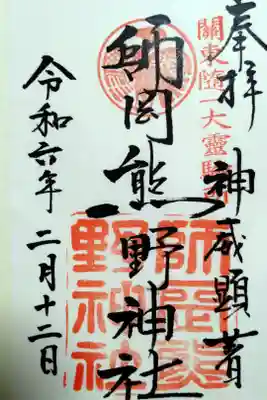 奉拝
神威顕著
關東随一大靈驗所
師岡熊野神社
師岡熊
野神社
令和六年二月十二日